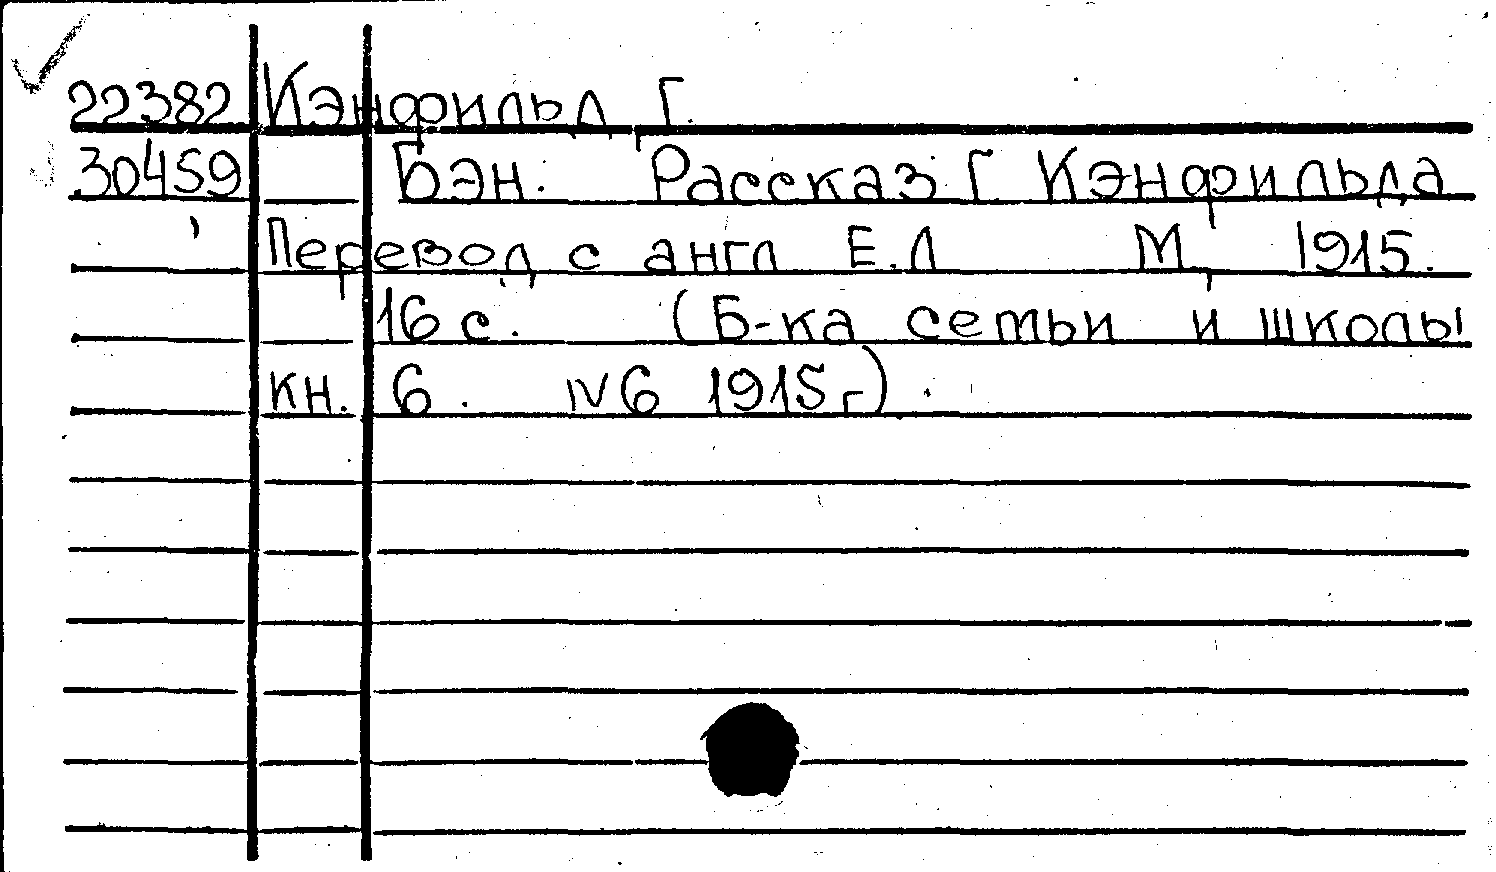 22382 Кэнфильд, Г.
30459 Бэн. Рассказ Г Кэнфильда
Перевод с англ Е.Л М, 1915.
16 с. (Б-ка семьи и школы
кн. 6. IV 6 1915 г).